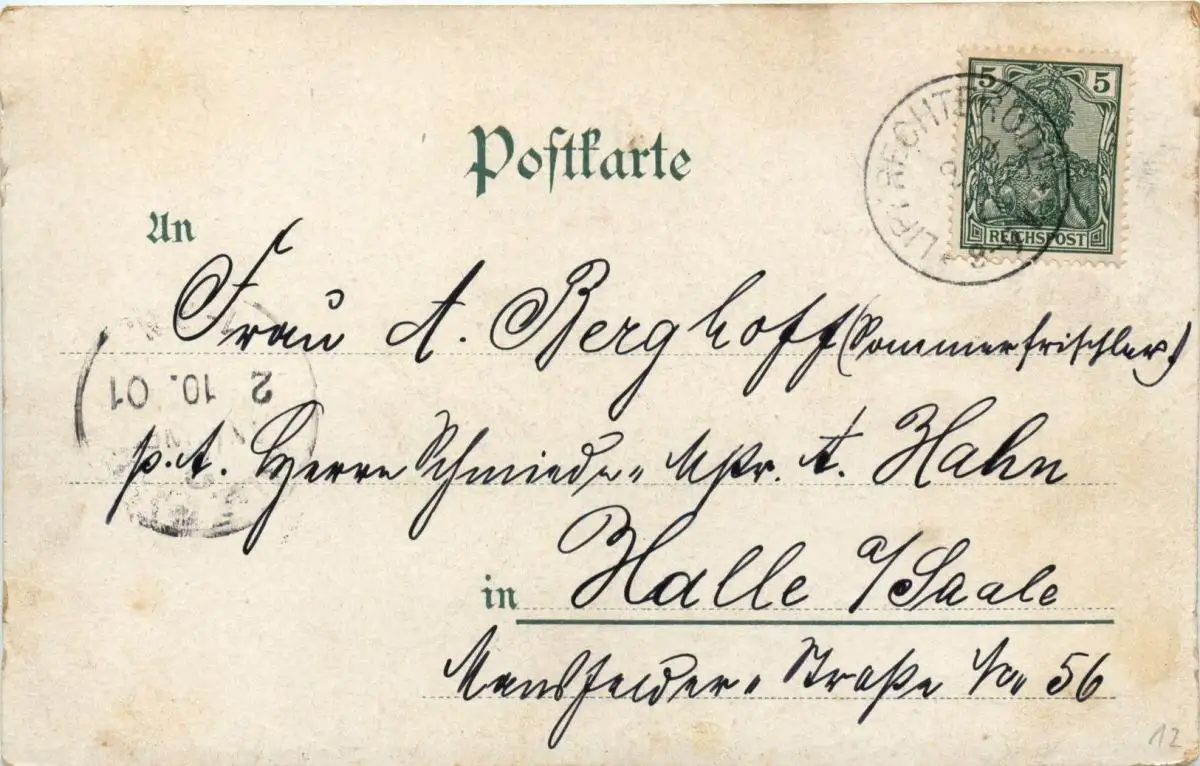 5 5
REICHSPOST
Postkarte
An
Frau A. Berghoff (Sommerfrischler)
p. A. Herrn Schmiede- Mstr. A. Hahn
2 10. 01
in Halle a/Saale
Mansfelder- Straße No 56
12